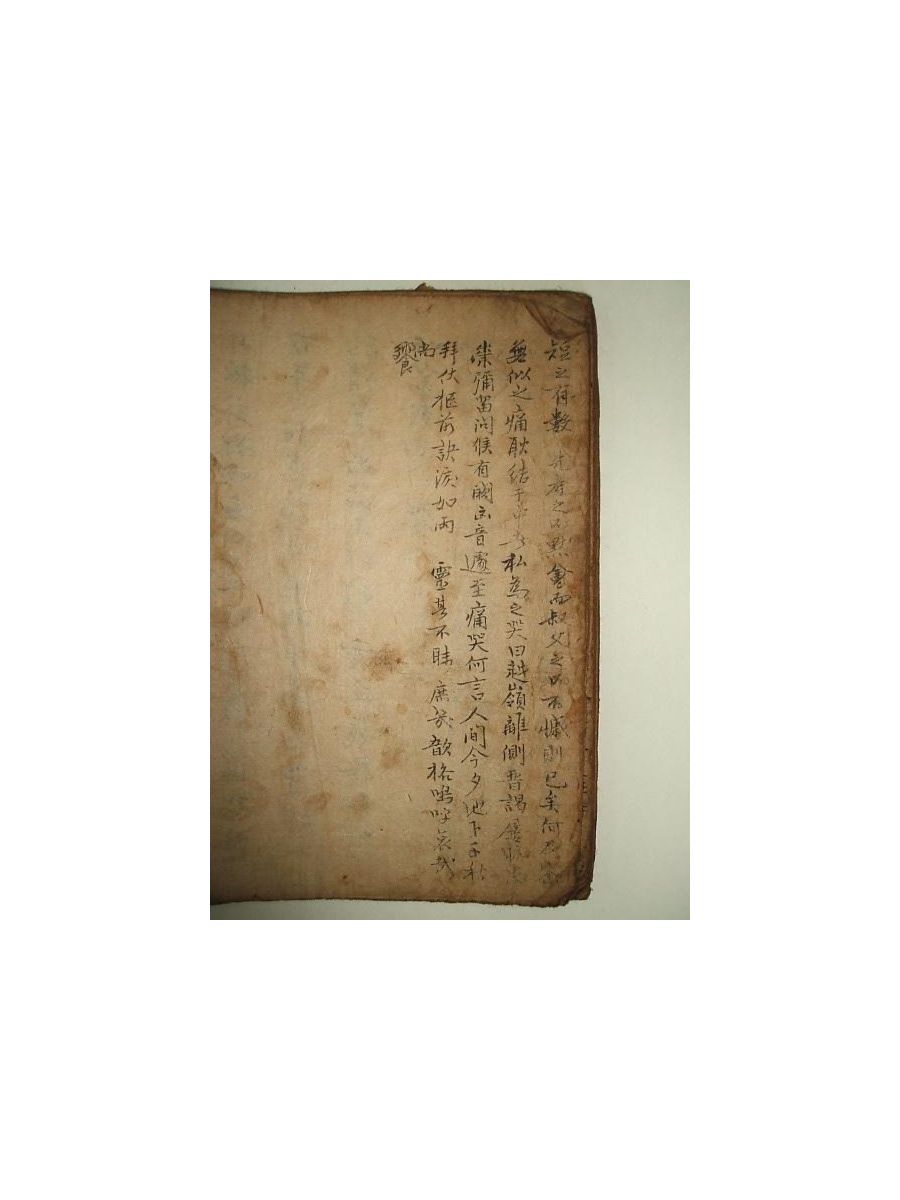 短之有數 之 默會而叔父之 可憾則已矣何
無似之痛耿結于中 私爲之哭曰越嶺離側晉謁
彌留問候有闕凶音遽至痛哭何言人間今夕地下千秋
拜伏柩前訣淚如雨 靈其不昧 庶幾歆格嗚呼哀哉
尚饗